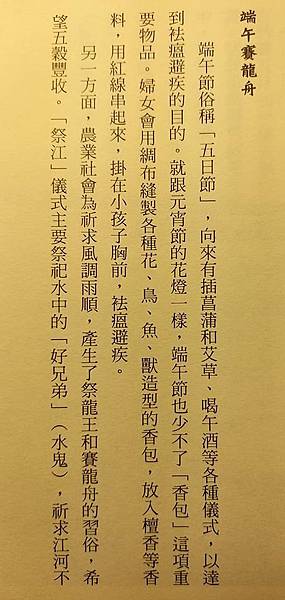 端午賽龍舟
端午節俗稱「五日節」，向來有插菖蒲和艾草、喝午酒等各種儀式，以達
到祛瘟避疾的目的。就跟元宵節的花燈一樣，端午節也少不了「香包」這項重
要物品。婦女會用綢布縫製各種花、鳥、魚、獸造型的香包，放入檀香等香
料，用紅線串起來，掛在小孩子胸前，祛瘟避疾。
另一方面，農業社會為祈求風調雨順，產生了祭龍王和賽龍舟的習俗，希
望五穀豐收。「祭江」儀式主要祭祀水中的「好兄弟」（水鬼），祈求江河不